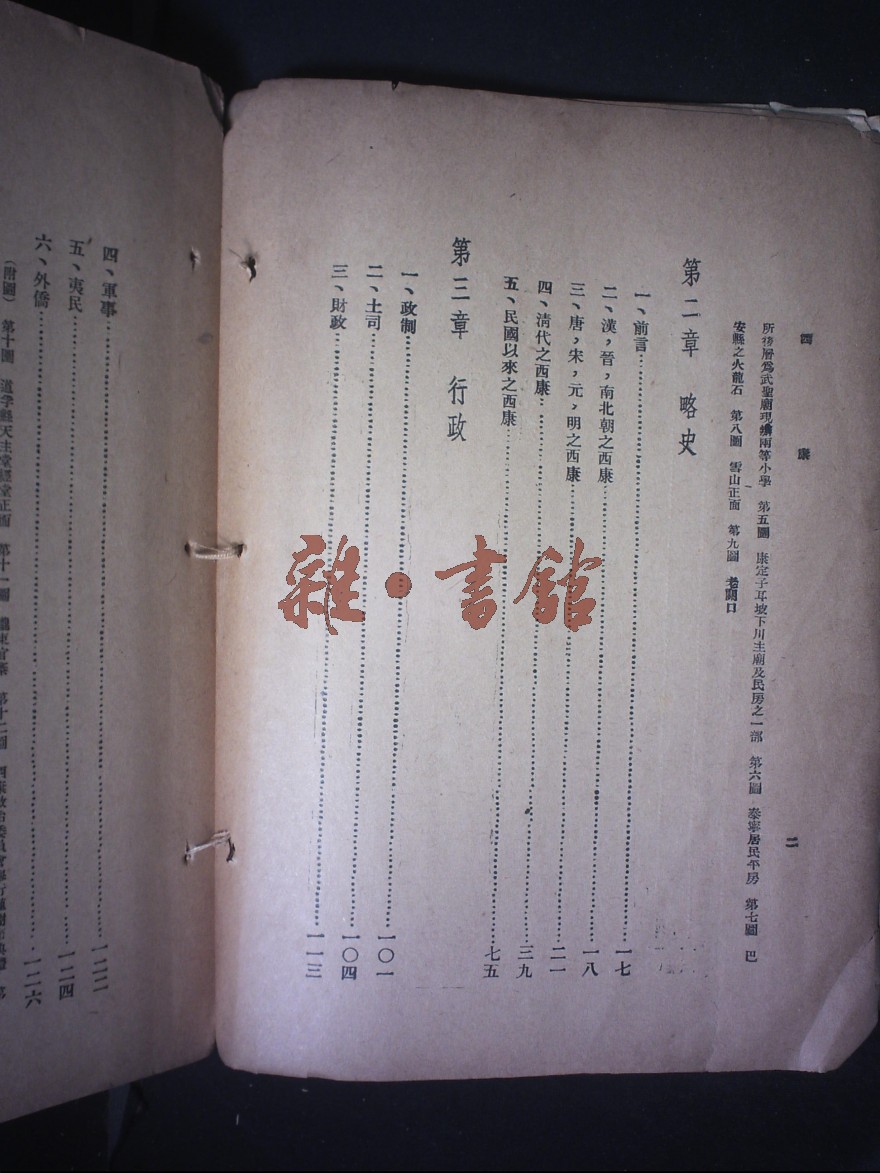 西康
二
所後層為武聖廟現續兩等小學 第五圖 康定子耳坡下川主廟及民房之一部 第六圖 泰寧居民平房 第七圖 巴
安縣之火龍石 第八圖 雪山正面 第九圖 老關口
第二章 略史
一、前言 一七
二、漢，晉，南北朝之西康 一八
三、唐，宋，元，明之西康 二一
四、清代之西康 三九
五、民國以來之西康 七五
第三章 行政
一、政制 一〇一
二、土司 一〇四
三、財政 一一三
四、軍事 一二二
五、夷民 一二四
六、外僑 一二六
(附圖) 第十圖 道孚縣天主堂經堂正面 第十一圖
雜·書館